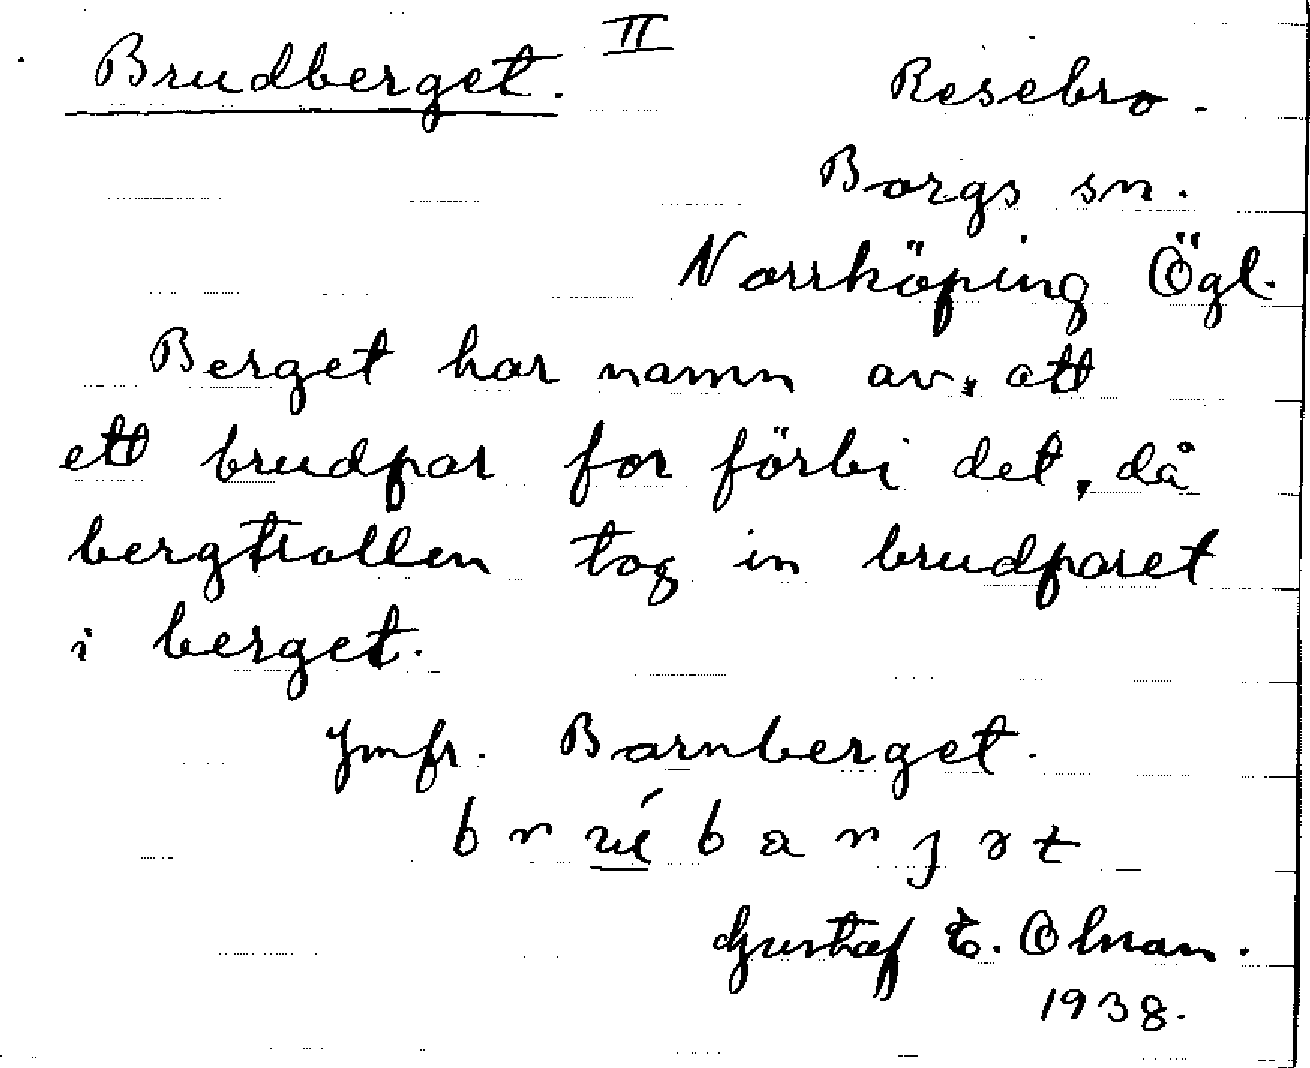 Brudberget. II
Resebro.
Borgs sn.
Norrköping Ögl.
Berget har namn av, att
ett brudpar for förbi det, då
bergtrollen tog in brudparet
i berget.
Jmfr. Barnberget.
Gustaf E. Olman.
1938.